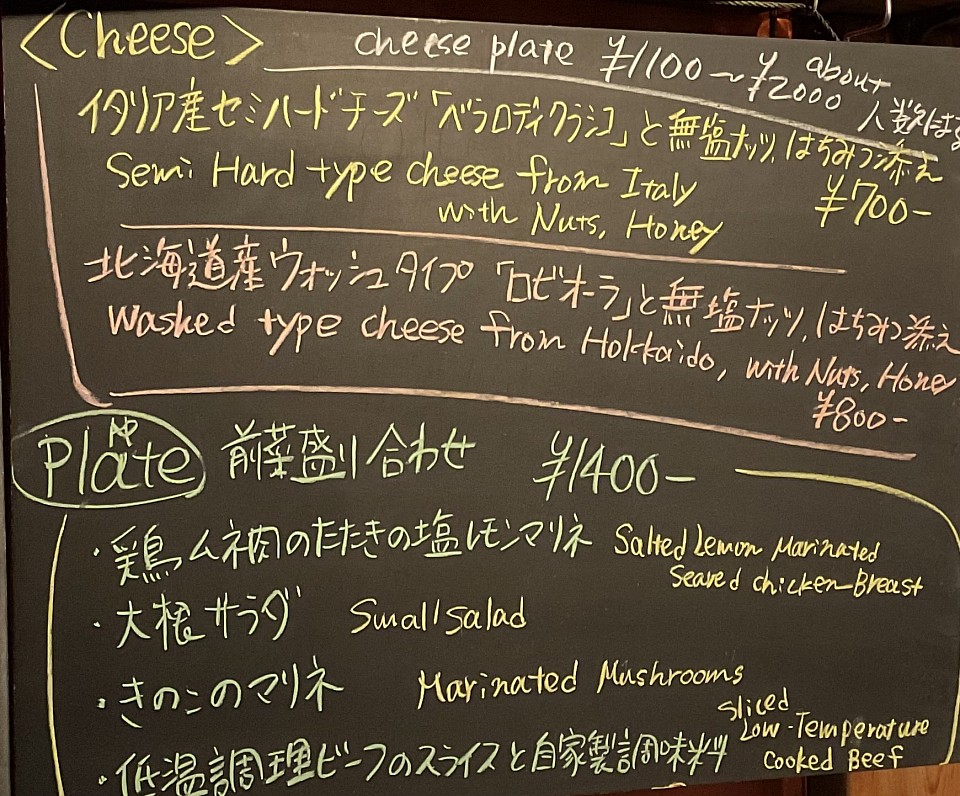 <Cheese> cheese plate ¥1100~¥2000 about
人数は
イタリア産セミハードチーズ「ベラロディクラシコ」と無塩ナッツ,はちみつ添え
Semi Hard type cheese from Italy
with Nuts, Honey ¥700-
北海道産ウォッシュタイプ「ロビオーラ」と無塩ナッツ,はちみつ添え
Washed type cheese from Hokkaido, with Nuts, Honey
¥800-
Plate 前菜盛り合わせ ¥1400-
・鶏ムネ肉のたたきの塩レモンマリネ Salted Lemon Marinated
Seared chicken Breast
・大根サラダ Small Salad
・きのこのマリネ Marinated Mushrooms
・低温調理ビーフのスライスと自家製調味料 Sliced
Low-Temperature
Cooked Beef